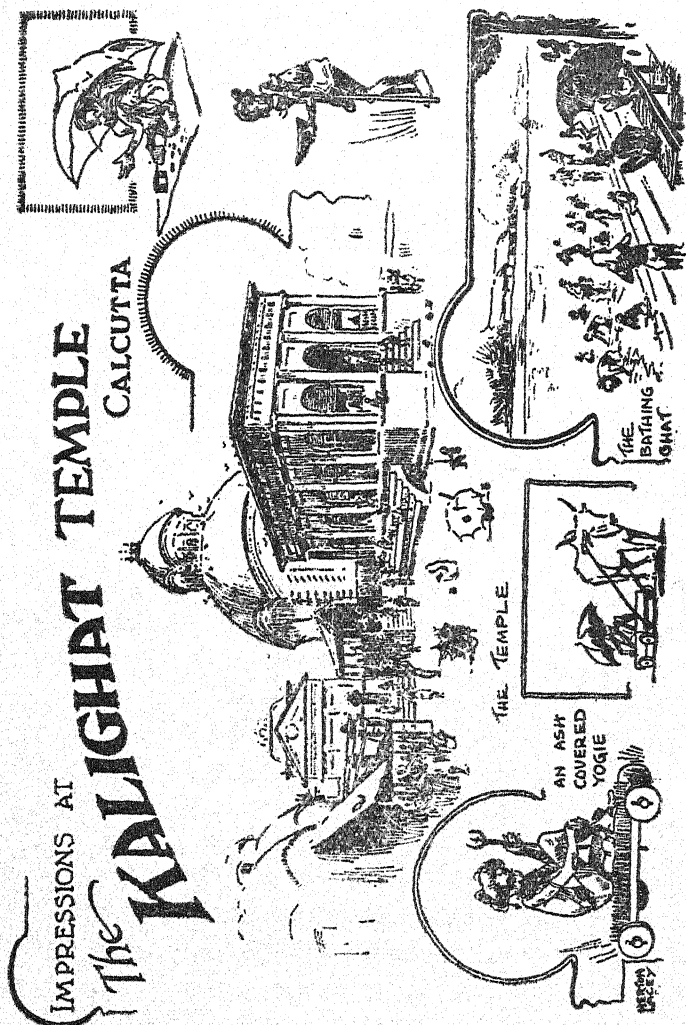 IMPRESSIONS AT
The KALIGHAT TEMPLE
CALCUTTA
THE TEMPLE
AN ASH
COVERED
YOGIE
THE
BATHING
GHAT
MERTON
LACEY